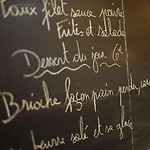 Faux filet sauce poivre
Frites et salade
Dessert du jour 6€
Brioche façon pain perdu, cara
beurre salé et sa glace